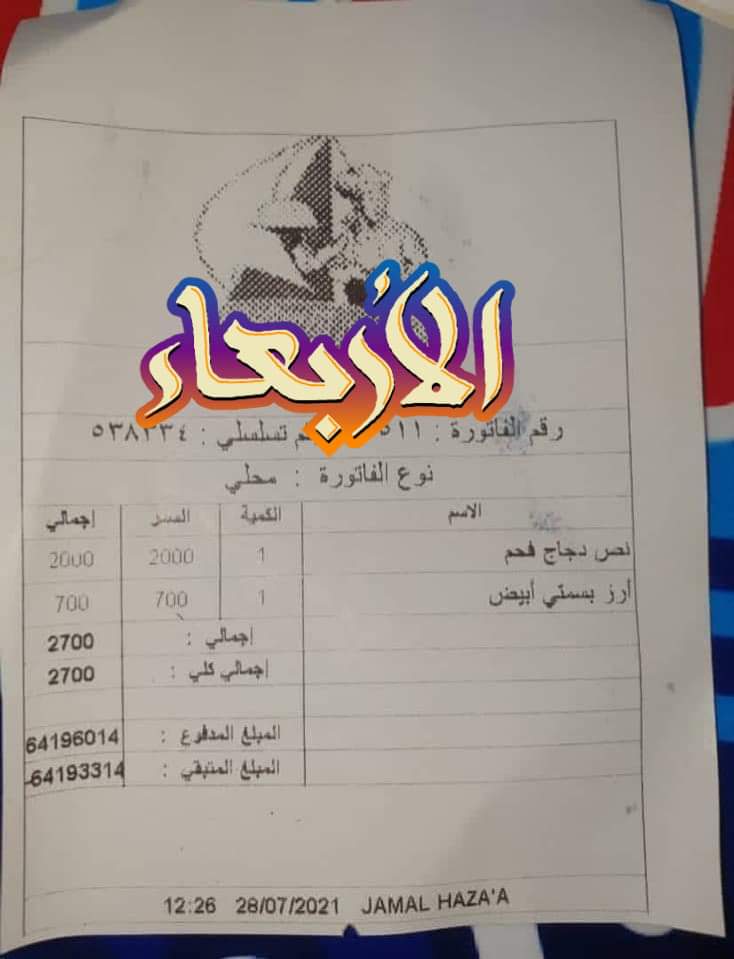 الأربعاء
رقم الفاتورة : تسلسلي :
نوع الفاتورة : محلي
الاسم الكمية السعر إجمالي
نص دجاج فحم 1 2000 2000
أرز بسمتي أبيض 1 700 700
إجمالي : 2700
إجمالي كلي : 2700
المبلغ المدفوع : 64196014
المبلغ المتبقي : -64193314
12:26 28/07/2021 JAMAL HAZA'A